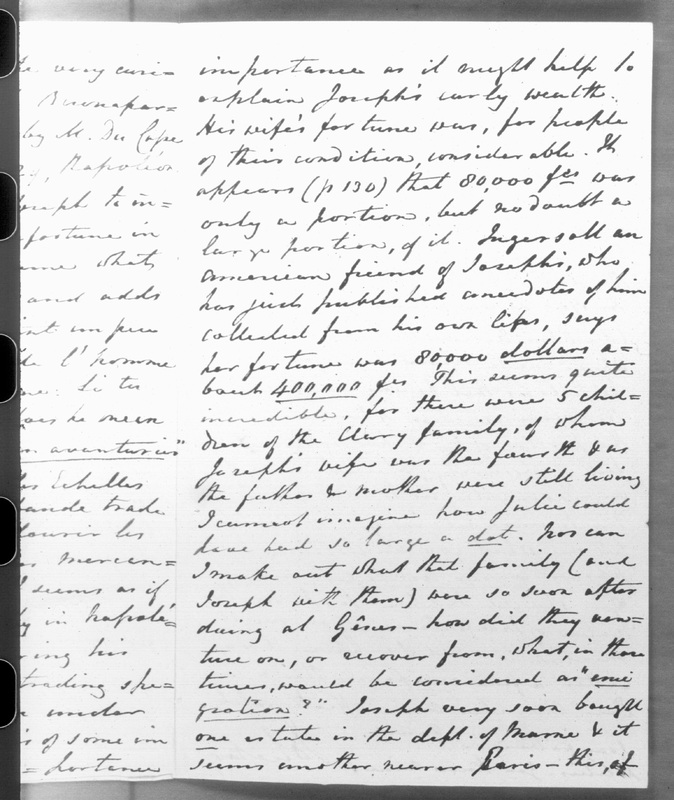 very curi=
Buonapar=
by M. Du Casse
Napoléon
Joseph to in=
fortune in
what
and adds
un peu
de l'homme
Si tu
does he mean
un aventurier"
les Echelles
trade
les
mercan=
seems as if
in Napolé=
ring his
trading spe=
under
of some im
=portance
importance as it might help to
explain Joseph's early wealth.
His wife's fortune was, for people
of their condition, considerable. It
appears (p 130) that 80,000 fcs was
only a portion, but no doubt a
large portion, of it. Ingersoll an
American friend of Joseph's, who
has just published anecdotes of him
collected from his own lips, says
her fortune was 80,000 dollars a=
bout 400,000 fcs This seems quite
incredible, for there were 5 chil=
dren of the Clary family, of whom
Joseph's wife was the fourth & as
the father & mother were still living
I cannot imagine how Julie could
have had so large a dot. Nor can
I make out what that family (and
Joseph with them) were so soon after
doing at Gênes — how did they ven=
ture on, or recover from, what, in those
times, would be considered as "emi
gration?" Joseph very soon bought
one estate in the dept. of Marne & it
seems another nearer Paris — this, of